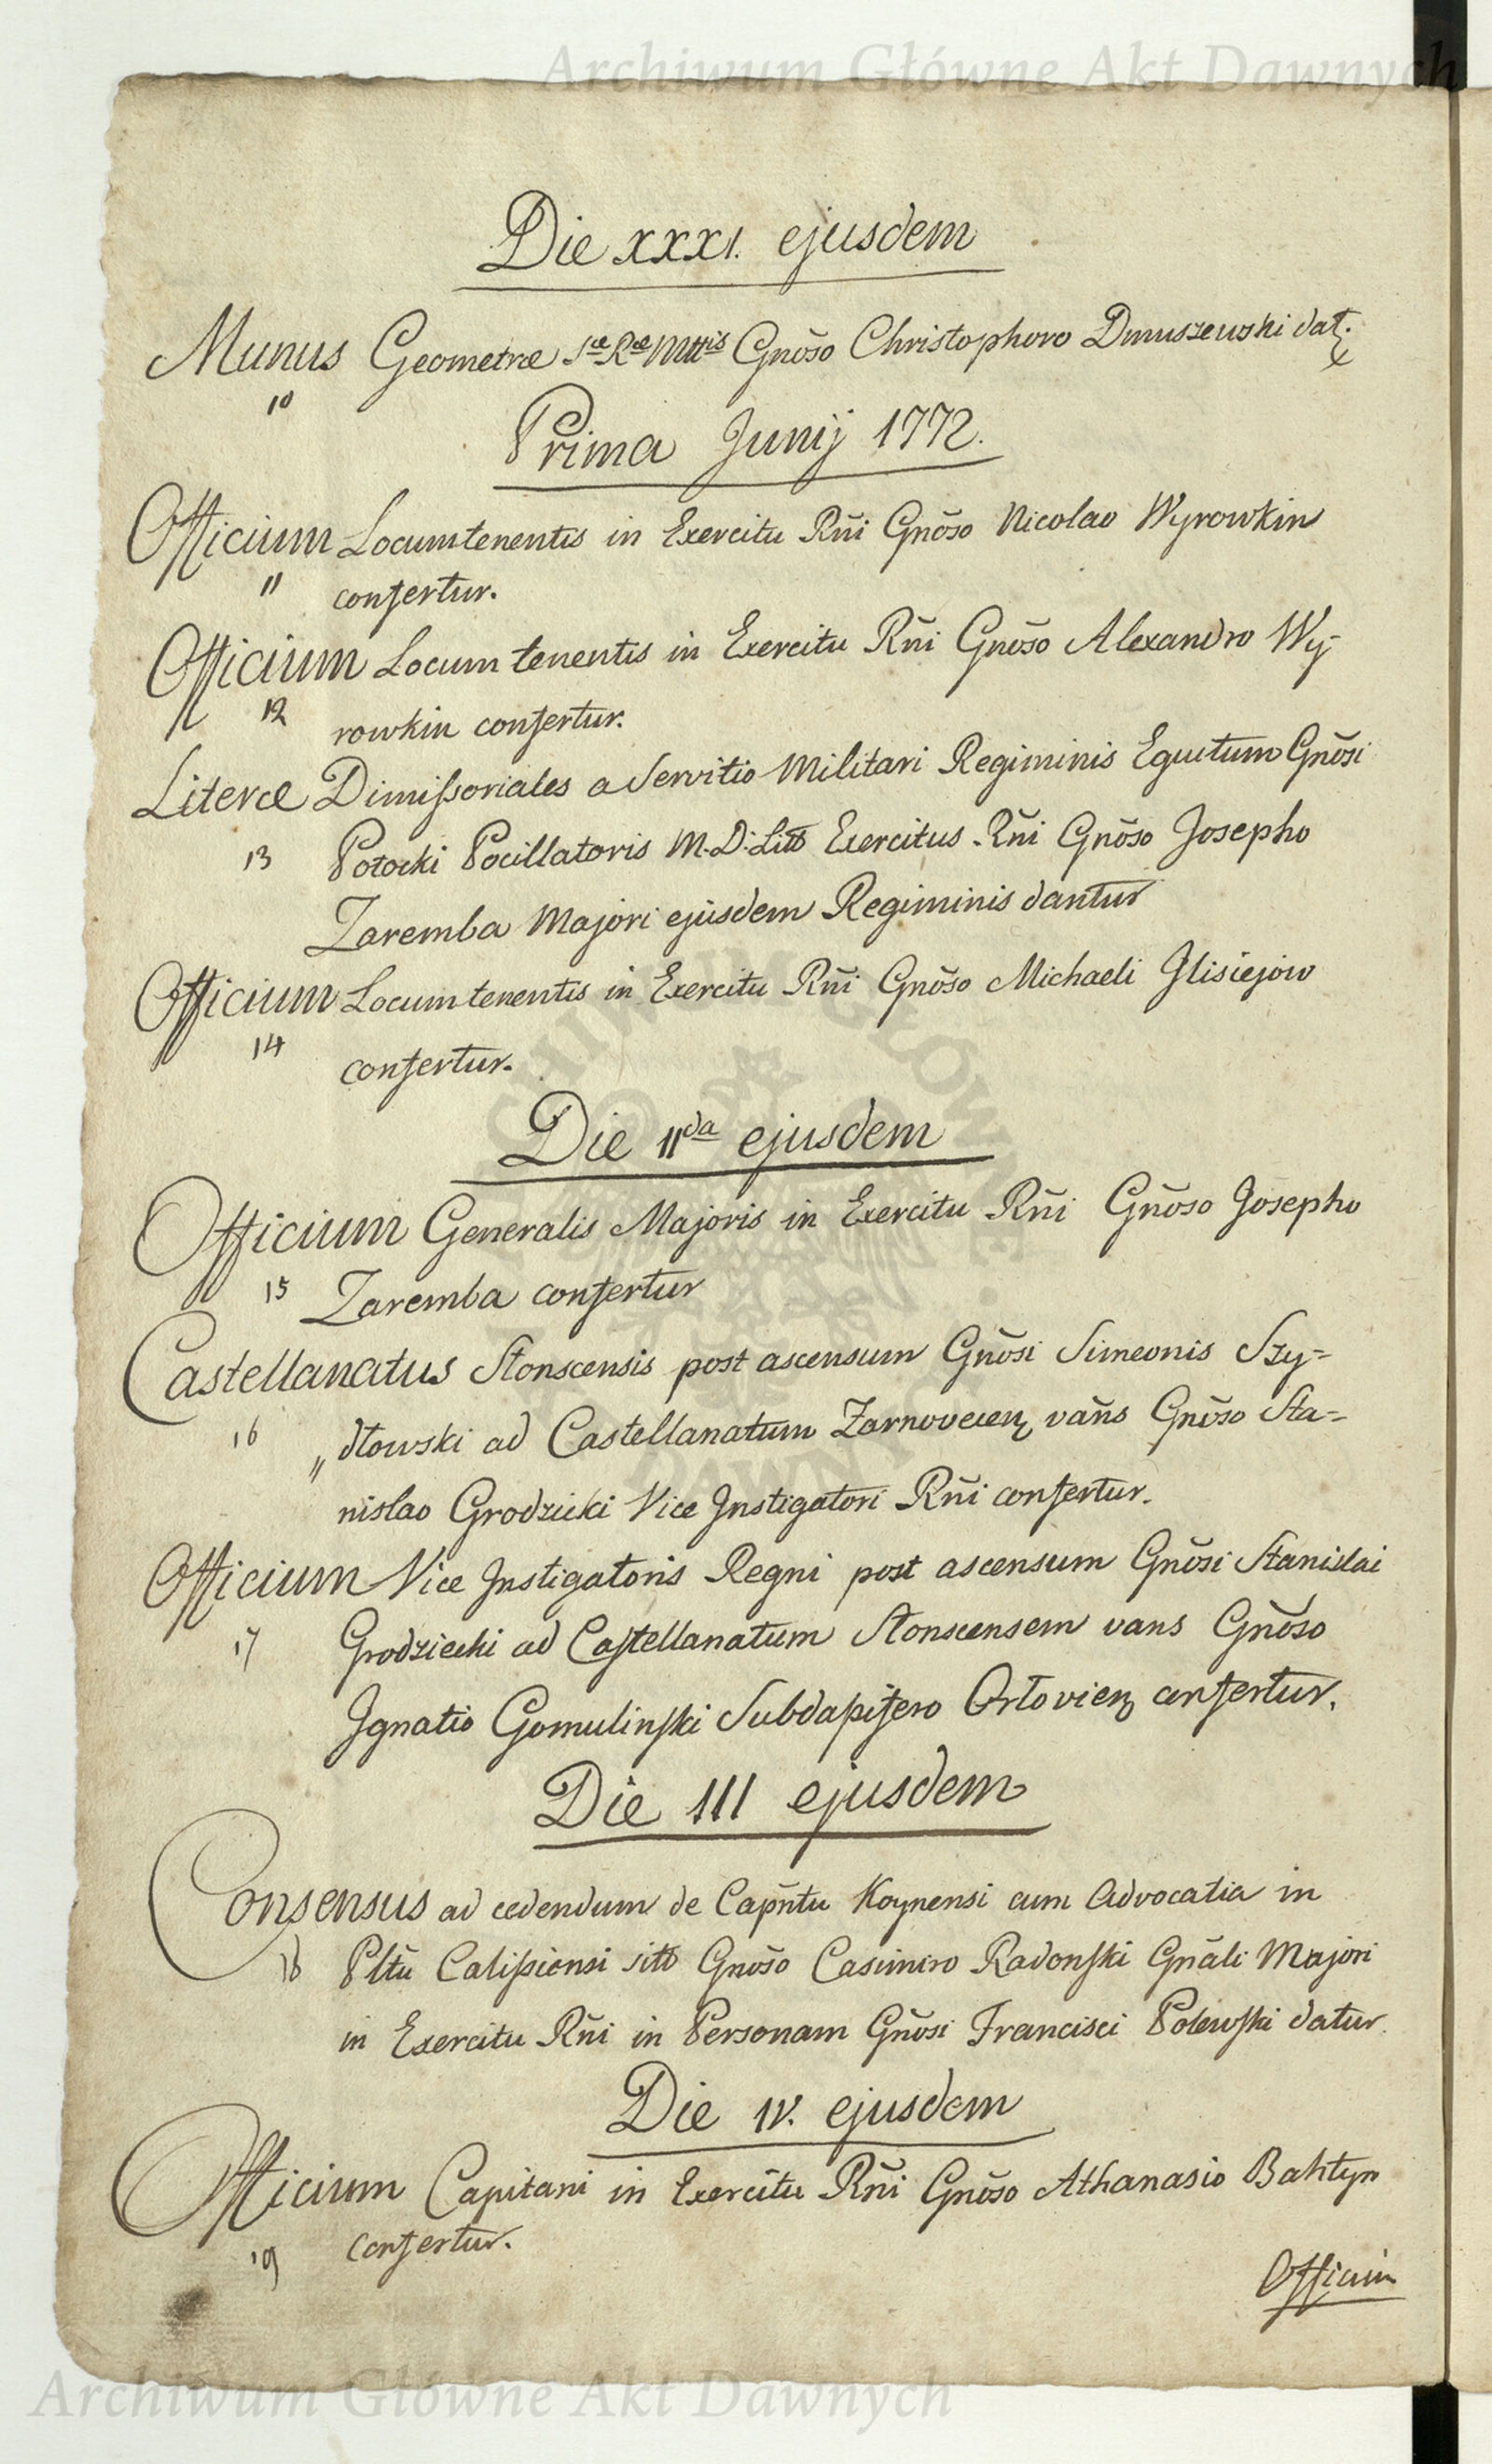 Archiwum Główne Akt Dawnych
Die XXXI. ejusdem
Munus Geometræ Sce Rce Mttis Gnõso Christophoro Dmuszewski dat:
10
Prima Junij 1772.
Officium Locumtenentis in Exercitu Rñi Gnõso Nicolao Wyrowkin
11 confertur.
Officium Locum tenentis in Exercitu Rñi Gnõso Alexandro Wy-
12 rowkin confertur.
Literæ Dimissoriales a Servitio Militari Regiminis Equitum Gnõsi
13 Potocki Pocillatoris M. D. Litt Exercitus Rñi Gnõso Josepho
Zaremba Majori ejusdem Regiminis dantur
Officium Locumtenentis in Exercitu Rñi Gnõso Michaeli Glisiejow
14 confertur.
Die IIda ejusdem
Officium Generalis Majoris in Exercitu Rñi Gnõso Josepho
15 Zaremba confertur
Castellanatus Stonscensis post ascensum Gnõsi Simeonis Szy=
16 „dłowski ad Castellanatum Zarnovecen vañs Gnõso Sta=
nislao Grodzicki Vice Instigatori Rñi confertur.
Officium Vice Instigatoris Regni post ascensum Gnõsi Stanislai
17 Grodziecki ad Castellanatum Stonscensem vans Gnõso
Ignatio Gomulinski Subdapifero Orłovien confertur.
Die III ejusdem
Consensus ad cedendum de Capñtu Koynensi cum Advocatia in
18 Pltũ Calissiensi sitt Gnõso Casimiro Radonski Gñali Majori
in Exercitu Rñi in Personam Gnõsi Francisci Polewski datur.
Die IV. ejusdem
Officium Capitani in Exercitu Rñi Gnõso Athanasio Bahtyn
19 confertur.
Officium
Archiwum Główne Akt Dawnych